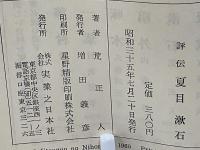 評伝 夏目漱石
定価 三八〇円
昭和三十五年七月二十日発行
著者 荒正人
発行者 増田義彦
印刷所 星野精版印刷株式会社
発行所 株式会社 実業之日本社
東京都中央区銀座西一ノ三